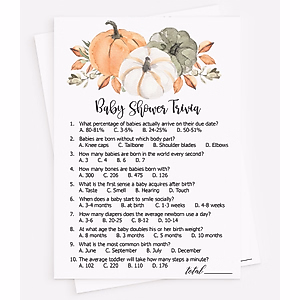 Baby Shower Trivia
1. What percentage of babies actually arrive on their due date?
A. 80-81% C. 3-5% B. 24-25% D. 50-51%
2. Babies are born without which body part?
A. Knee caps C. Tailbone B. Shoulder blades D. Elbows
3. How many babies are born in the world every second?
A. 3 C. 4 B. 6 D. 7
4. How many bones are babies born with?
A. 300 C. 206 B. 475 D. 126
5. What is the first sense a baby acquires after birth?
A. Taste C. Smell B. Hearing D. Touch
6. When does a baby start to smile socially?
A. 3-4 months B. at birth C. 1-3 weeks D. 4-8 weeks
7. How many diapers does the average newborn use a day?
A. 2-3 C. 4-6 B. 8-10 D. 10-12
8. At what age the baby doubles his or her birth weight?
A. 8 months C. 3 months B. 5 months D. 6 months
9. What is the most common birth month?
A. June C. September B. July D. December
10. The average toddler will take how many steps a minute?
A. 102 C. 220 B. 110 D. 176
total